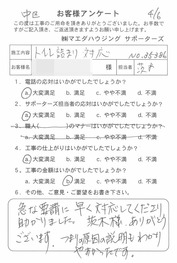 中区
お客様アンケート
4/6
この度の工事のご用命を頂きありがとうございました。お手数で
すがご記入頂き、ご返送頂きますようお願い申し上げます。
㈱マエダハウジング サポーターズ
施工内容 トイレ詰まり対応 NO.
お名前 様 担当
1. 電話の対応はいかがでしたでしょうか?
a.大変満足 b.満足 c.やや不満 d.不満
2. サポーターズ担当者の対応はいかがでしたでしょうか?
a.大変満足 b.満足 c.やや不満 d.不満
3. 職人( )のマナーはいかがでしたでしょうか?
a.大変満足 b.満足 c.やや不満 d.不満
4. 工事の仕上がりはいかがでしたでしょうか?
a.大変満足 b.満足 c.やや不満 d.不満
5. 工事の金額はいかがでしたでしょうか?
a.大変満足 b.満足 c.やや不満 d.不満
6. その他、ご意見・ご要望をお書き下さい。
急な要請に早く対応してくださり
助かりました。並木様、ありがとう
ございます。つまり原因の説明もわかり
やすかったです。